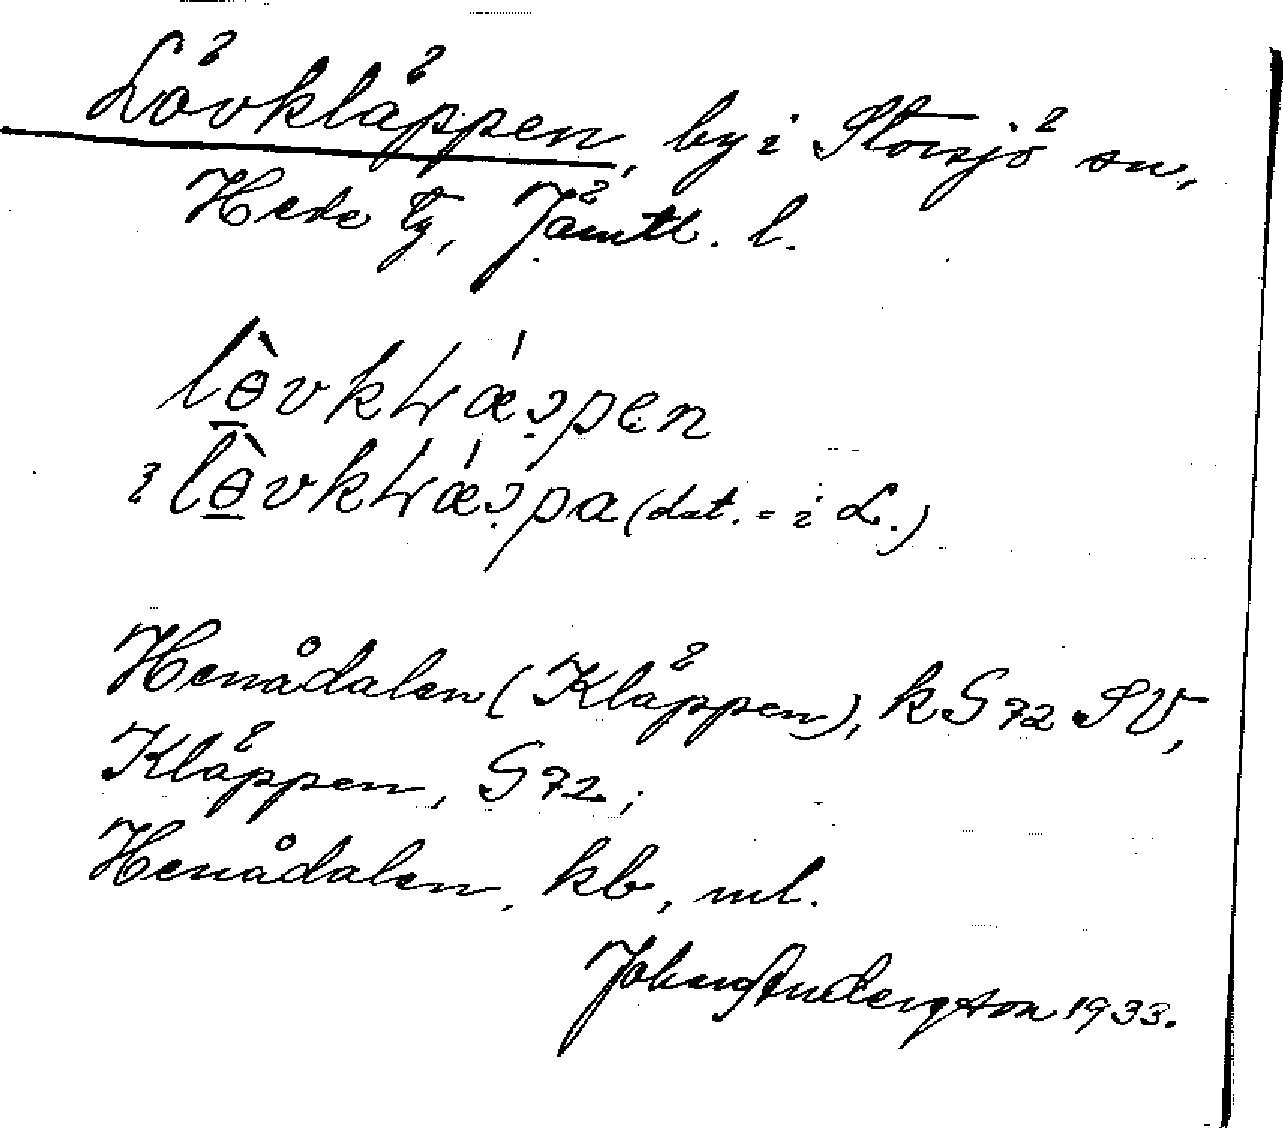 Lövkläppen, by i Storsjö sn,
Hede tg, Jämtl. l.
lꝋ̀vkɬǽpen
i lꝋ̀vkɬǽpa (dat. = i L.)
Henådalen (Kläppen), k G 72 SV,
Kläppen, G 72;
Henådalen, kb, ml.
Johan Anderson 1933.